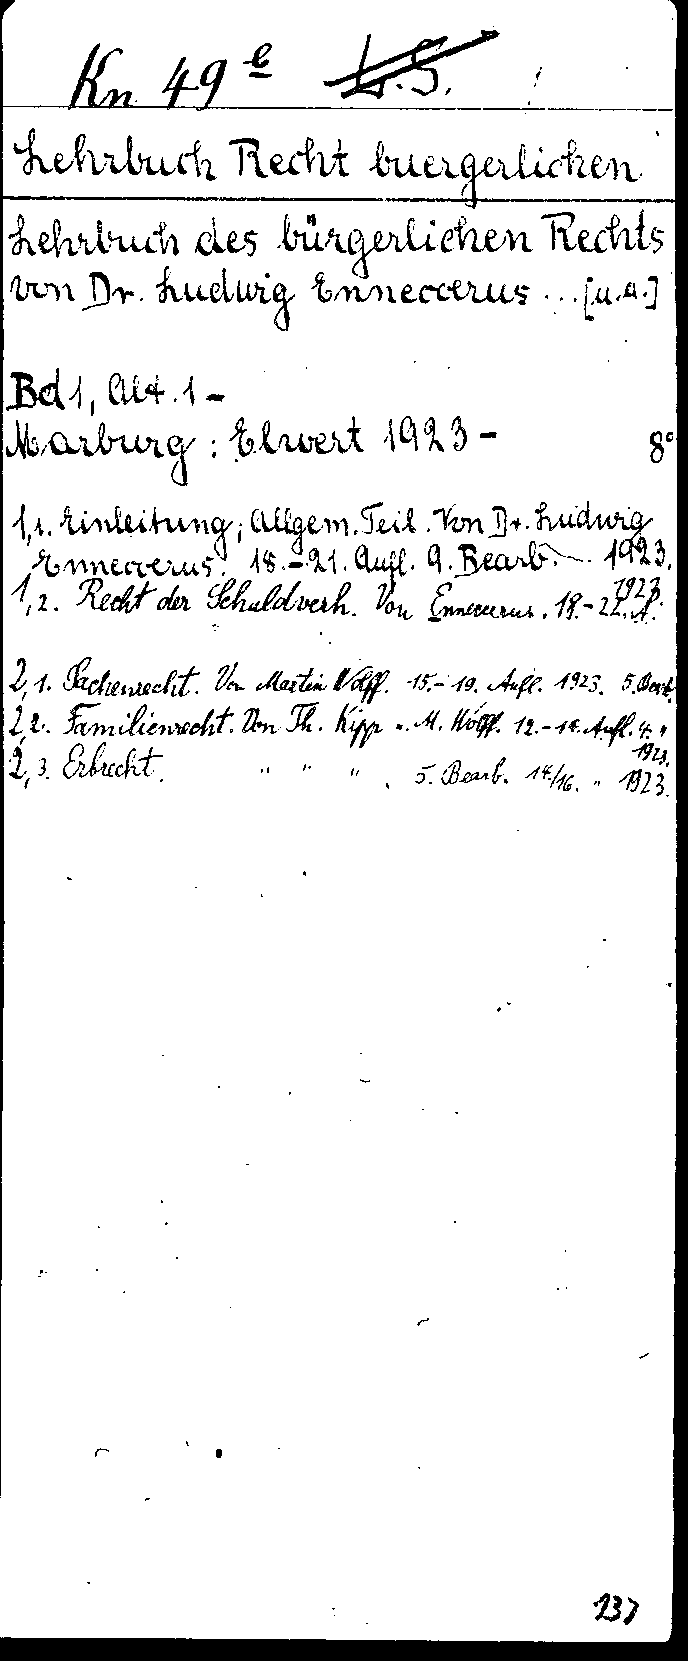 Kn 49 e L.S.
Lehrbuch Recht buergerlichen
Lehrbuch des bürgerlichen Rechts
von Dr. Ludwig Enneccerus ... [u.a.]
Bd 1, Abt. 1 -
Marburg : Elwert 1923 - 8°
1,1. Einleitung; Allgem. Teil. Von Dr. Ludwig
Enneccerus. 18.-21. Aufl. 9. Bearb. 1923.
1,2. Recht der Schuldverh. Von Enneccerus. 18.-22. A. 1923.
2,1. Sachenrecht. Von Martin Wolff. 15.-19. Aufl. 1923. 5. Bearb.
2,2. Familienrecht. Von Th. Kipp u. M. Wolff. 12.-14. Aufl. 4. " 1923.
2,3. Erbrecht. " " " . 5. Bearb. 14./16. " 1923.
137